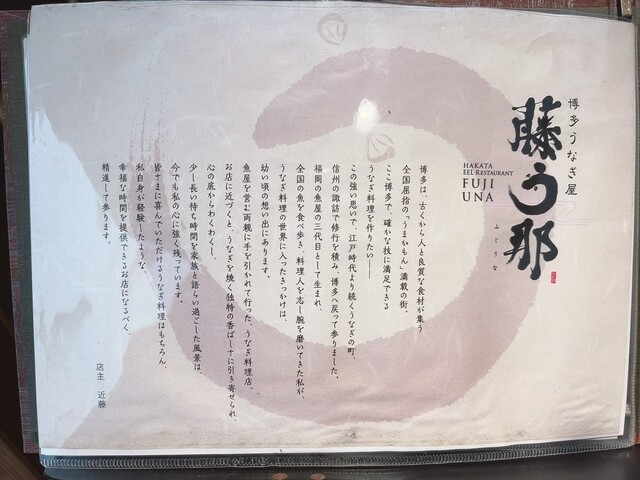 博多うなぎ屋
藤う那
ふじうな
HAKATA
EEL RESTAURANT
FUJI
UNA
博多は、古くから人と良質な食材が集う
全国屈指の、「うまかもん」満載の街。
ここ博多で、確かな技に満足できる
うなぎ料理を作りたい――
この強い思いで、江戸時代より続くうなぎの町、
信州の諏訪で修行を積み、博多へ戻って参りました。
福岡の魚屋の三代目として生まれ、
全国の魚を食べ歩き、料理人を志し腕を磨いてきた私が、
うなぎ料理の世界に入ったきっかけは、
幼い頃の想い出にあります。
魚屋を営む両親に手を引かれて行った、うなぎ料理店。
お店に近づくと、うなぎを焼く独特の香ばしさに引き寄せられ、
心の底からわくわくし、
少し長い待ち時間を家族と語らい過ごした風景は、
今でも私の心に強く残っています。
皆さまに喜んでいただけるうなぎ料理はもちろん、
私自身が経験したような、
幸福な時間を提供できるお店になるべく、
精進して参ります。
店主 近藤